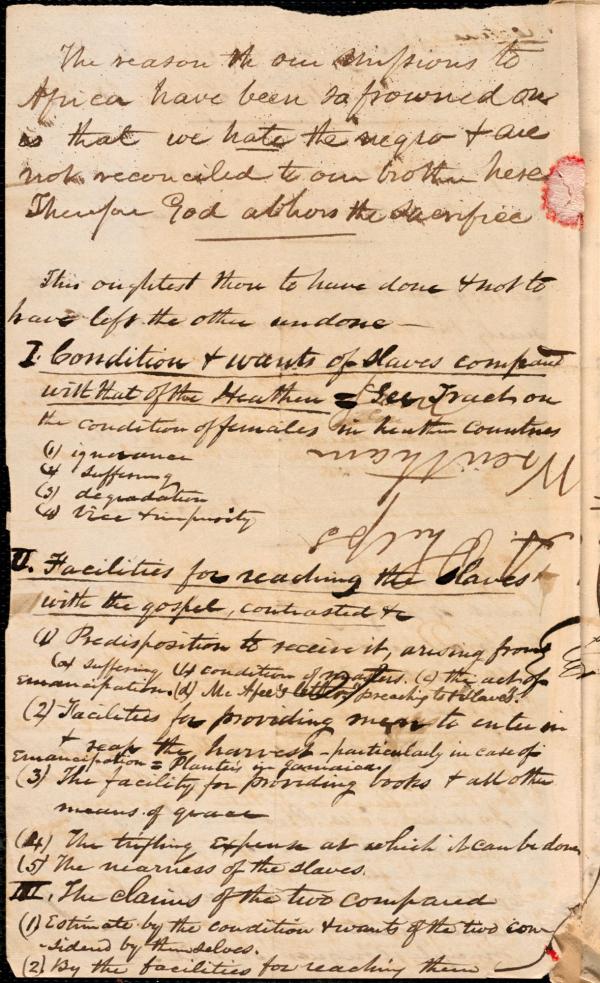 The reason th our missions to
Africa have been so frowned on
is that we hate the negro & are
not reconciled to our brother here
Therefore God abhors the sacrifice
This oughtest thou to have done & not to
have left the other undone —
I. Condition & wants of slaves compared
with that of the Heathen = See Tract on
the condition of females in heathen countries
(1) ignorance
(2) suffering
(3) degradation
(4) vice & impurity
Wrentham
A. A. Phelps
II. Facilities for reaching the slaves
with the gospel, contrasted &c
(1) Predisposition to receive it, arising from
(a) suffering (b) condition of masters. (c) the act of
Emancipation. (d) Mc Afee's preaching to slaves.
(2) Facilities for providing men to enter in
& reap the harvest – particularly in case of
Emancipation = Planters in Jamaica.
(3) The facility for providing books & all other
means of grace
(4) The trifling expense at which it can be done
(5) The nearness of the slaves.
III. The claims of the two compared
(1) Estimate by the condition & wants of the two con-
-sidered by themselves.
(2) By the facilities for reaching them